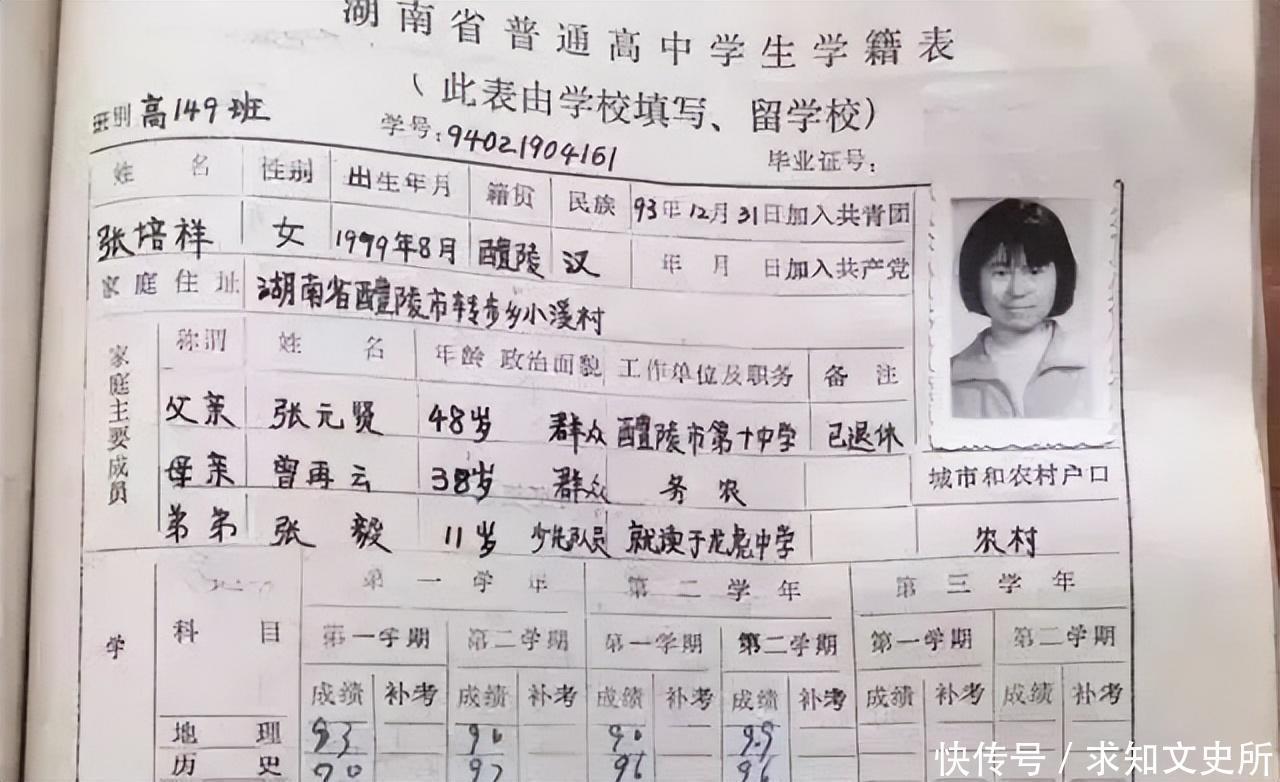 湖南省普通高中学生学籍表
(此表由学校填写、留学校)
班别 高149班 学号: 94021904161 毕业证号:
姓名 性别 出生年月 籍贯 民族 93年12月31日加入共青团
张培祥 女 1979年8月 醴陵 汉 年 月 日加入共产党
家庭住址 湖南省醴陵市转步乡小溪村
家庭主要成员 称谓 姓名 年龄 政治面貌 工作单位及职务 备注
父亲 张元贤 48岁 群众 醴陵市第十中学 已退休
母亲 曾再云 38岁 群众 务农 城市和农村户口
弟弟 张毅 11岁 少先队员 就读于龙虎中学 农村
学 科目 第一学年 第二学年 第三学年
第一学期 第二学期 第一学期 第二学期 第一学期 第二学期
成绩 补考 成绩 补考 成绩 补考 成绩 补考 成绩 补考 成绩 补考
地理 90 90
历史 96 96
快传号 / 求知文史所